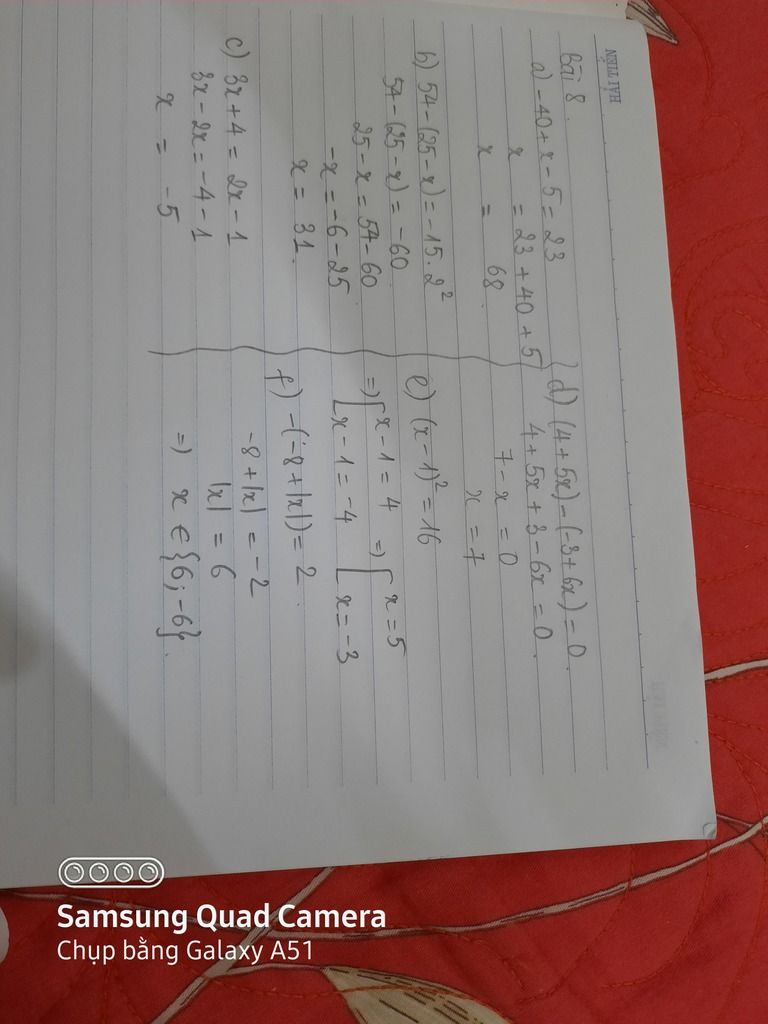 HẢI TIẾN
Bài 8.
a) -40 + x - 5 = 23
x = 23 + 40 + 5
x = 68.
b) 54 - (25 - x) = -15 . 2²
54 - (25 - x) = -60.
25 - x = 54 - 60
-x = -6 - 25
x = 31.
c) 3x + 4 = 2x - 1
3x - 2x = -4 - 1
x = -5
d) (4 + 5x) - (-3 + 6x) = 0.
4 + 5x + 3 - 6x = 0.
7 - x = 0
x = 7
e) (x - 1)² = 16
=> [ x - 1 = 4 => [ x = 5
[ x - 1 = -4 [ x = -3
f) -(-8 + |x|) = 2.
-8 + |x| = -2
|x| = 6
=> x ∈ {6; -6}.
Samsung Quad Camera
Chụp bằng Galaxy A51